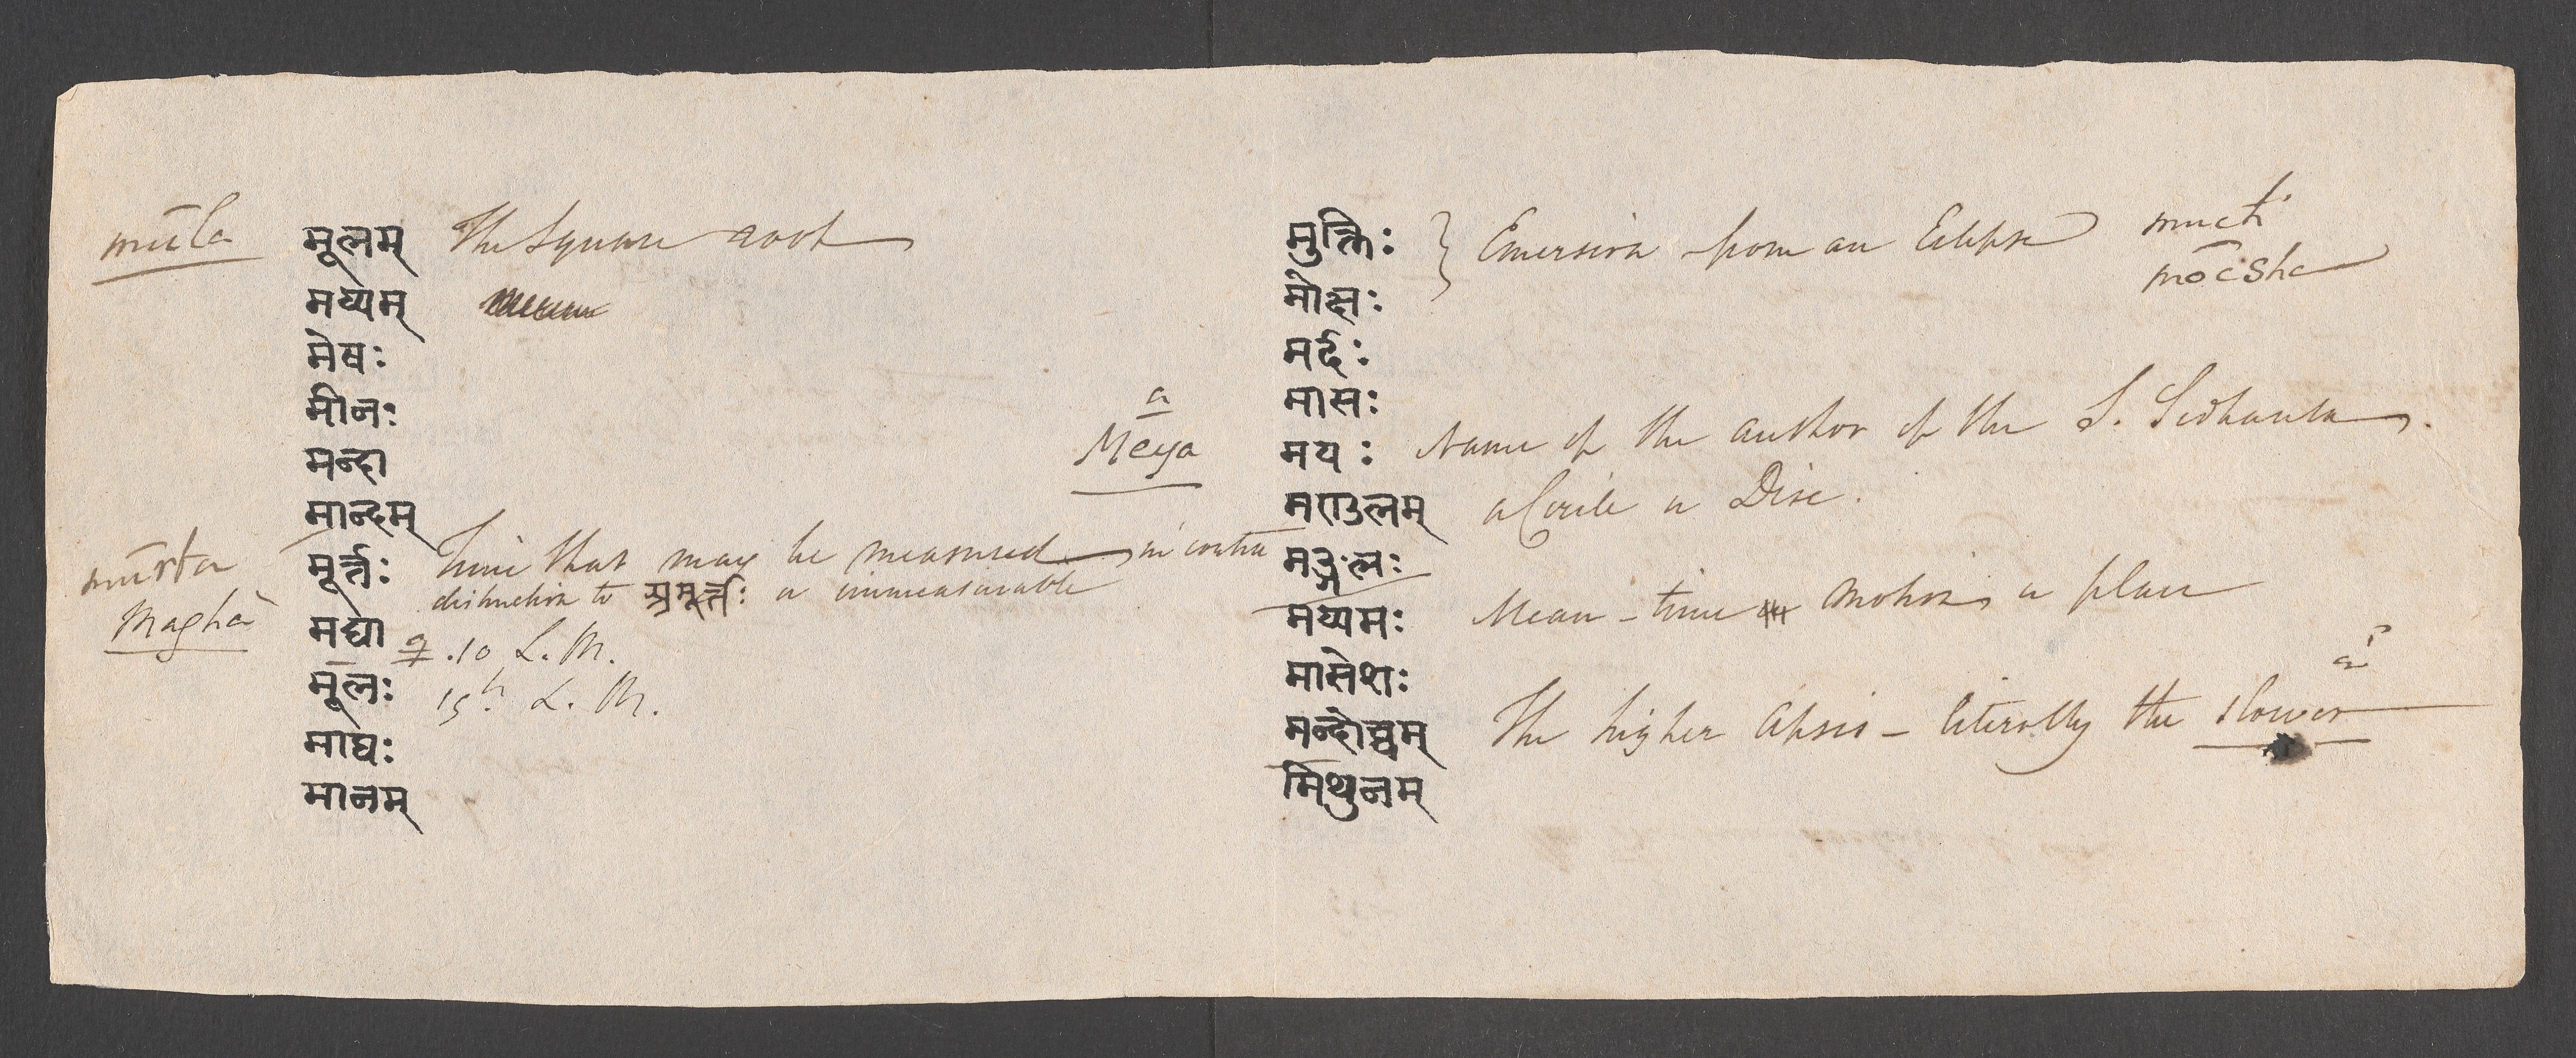 mūla मूलम् The Square root
मध्यम्
मेषः
मीनः
मन्दा
मान्दम्
mūrta मूर्त्तः Time that may be measured in contra
distinction to अमूर्त्तः or immeasurable
Maghà मघा 10 L. M.
मूलः 15th. L. M.
माघः
मानम्
मुक्तिः } Emersion from an Eclipse mucti
मोक्षः mōcsha
मर्द्दः
मासः
a
Meya मयः Name of the author of the S. Sidhanta.
मण्डलम् a Circle or Disc.
मङ्गलः
मध्यमः Mean - time motion or place
मासेशः
मन्दोच्चम् The higher Apsis - literally the slower
मिथुनम्